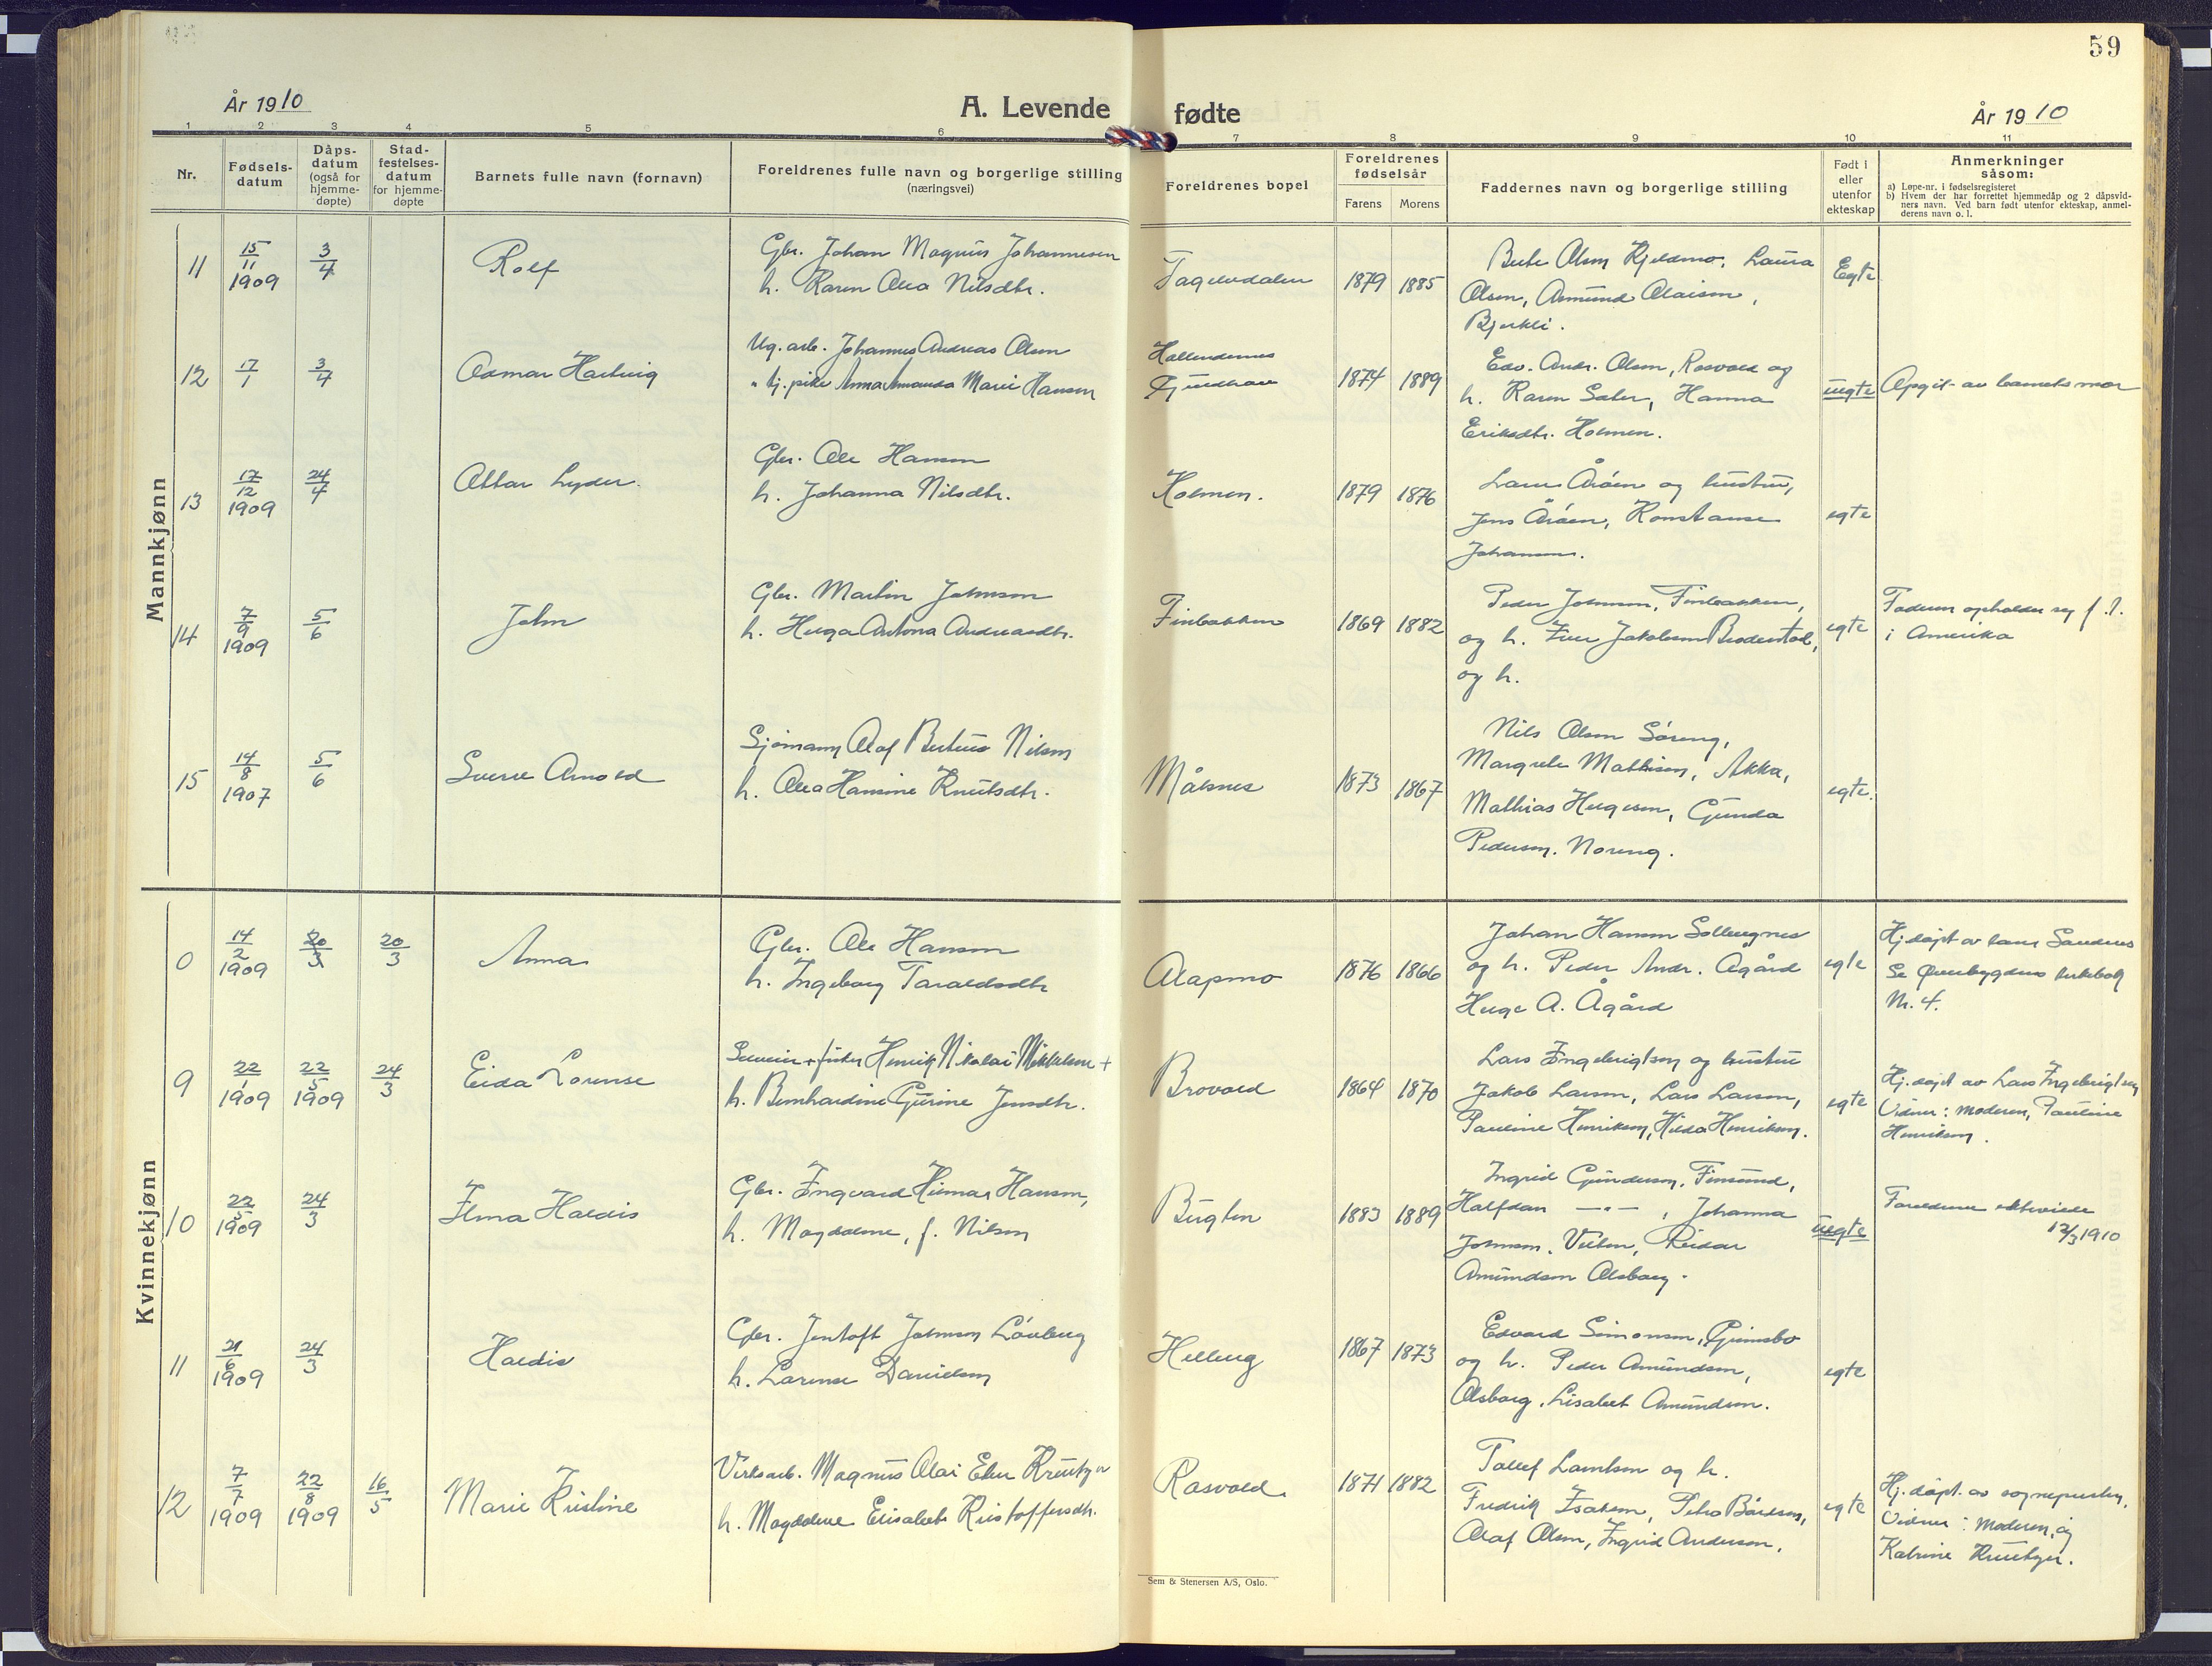 59
År 1910
A. Levende fødte
År 1910
1 2 3 4 5 6 7 8 9 10 11
Nr.
Fødsels-
datum
Dåps-
datum
(også for
hjemme-
døpte)
Stad-
festelses-
datum
for hjemme-
døpte
Barnets fulle navn (fornavn)
Foreldrenes fulle navn og borgerlige stilling
(næringsvei)
Foreldrenes bopel
Foreldrenes
fødselsår
Farens
Morens
Faddernes navn og borgerlige stilling
Født i
eller
utenfor
ekteskap
Anmerkninger
såsom:
a) Løpe-nr. i fødselsregisteret
b) Hvem der har forrettet hjemmedåp og 2 dåpsvid-
ners navn. Ved barn født utenfor ekteskap, anmel-
derens navn o. l.
Mannkjønn
11
15/11
1909
3/4
Rolf
Gbr. Johan Magnus Johannesen
h. Karen Olea Nilsdtr.
1879
1885
Olsen Kjeldmo, Laura
Olsen, Amund Olaisen,
Bjerkli.
Egte
12
17/1
3/4
Oddmar Hartvig
Ug. arb. Johannes Andreas Olsen
" tj. pike Anna Amanda Marie Hansen
1874
1889
Edv. Andr. Olsen, Rosvold og
h. Karen Sæter, Hanna
Eriksdtr. Holmen.
uegte
Opgit av barnets mor
13
17/12
1909
24/4
Ottar Lyder.
Gbr. Ole Hansen
h. Johanna Nilsdtr.
Holmen.
1879
1876
Larsen Åsøen og hustru,
Jens Åsøen, Konstanse
Johansen.
egte
14
7/9
1909
5/6
John
Gbr. Martin Johnsen
h. Helga Antona Andreasdtr.
Finbakken
1869
1882
Peder Johnsen, Finbakken,
og h. Iver Jakobsen Brodestad,
og h.
egte
Faderen opholder sig f. t.
i Amerika
15
14/8
1907
5/6
Sverre Arnold
Sjømann Olaf Berteus Nilsen
h. Olea Hansine Knutsdtr.
Målsnes
1873
1867
Nils Olsen Søreng,
Margrete Mathisen, Akka,
Mathias Helgesen, Gunda
Pedersen, Noreng.
egte.
Kvinnekjønn
0
14/2
1909
20/3
20/3
Anna
Gbr. Ole Hansen
h. Ingeborg Taraldsdtr
Olapmo
1876
1866
Johan Hansen Sollengnes
og h. Peder Andr. Ågård
Helge A. Ågård
egte
Hj.døpt av lens. Sandnes
Se Øverbygdens kirkebok
Nr. 4.
9
22/1
1909
22/5
1909
24/3
Eida Lorense
fisker Henrik Nikolai Mikkelsen +
h. Bernhardine Gurine Jensdtr.
Brovold
1864
1870
Lars Ingebrigtsen og hustru
Jakob Larsen, Lars Larsen,
Pauline Henriksen, Hilda Henriksen.
egte
Hj. døpt av Lars Ingebrigtsen
Vidner: moderen, Pauline
Henriksen.
10
22/5
1909
24/3
Elma Haldis
Gbr. Ingvard Hilmar Hansen,
h. Magdalene, f. Nilsen
Bugten
1883
1889
Ingrid Gundersen, Finsund,
Halfdan —"—, Johanna
Johnsen, Vollen, Reidar
Amundsen Olsborg.
uegte
Foreldrene ekteviede
12/3 1910
11
21/6
1909
24/3
Haldis
Gbr. Jentoft Johnsen Løvberg
h. Larense Danielsen
Helleng
1867
1873
Edvard Simonsen, Grimsbo
og h. Peder Amundsen,
Olsborg, Lisabet Amundsen.
egte
12
7/7
1909
22/8
1909
16/5
Marie Kristine
Virksarb. Magnus Olai Elen Kreutzer
h. Magdalene Elisabet Kristoffersdtr.
Rosvold
1871
1882
Tollef Lamtsen og h.
Fredrik Isaksen, Petra Bårdsen,
Olaf Olsen, Ingrid Andersen.
egte
Hj. døpt av sognepresten,
Vidner: Moderen, og
Katrine Kreutzer.
Sem & Stenersen A/S, Oslo.